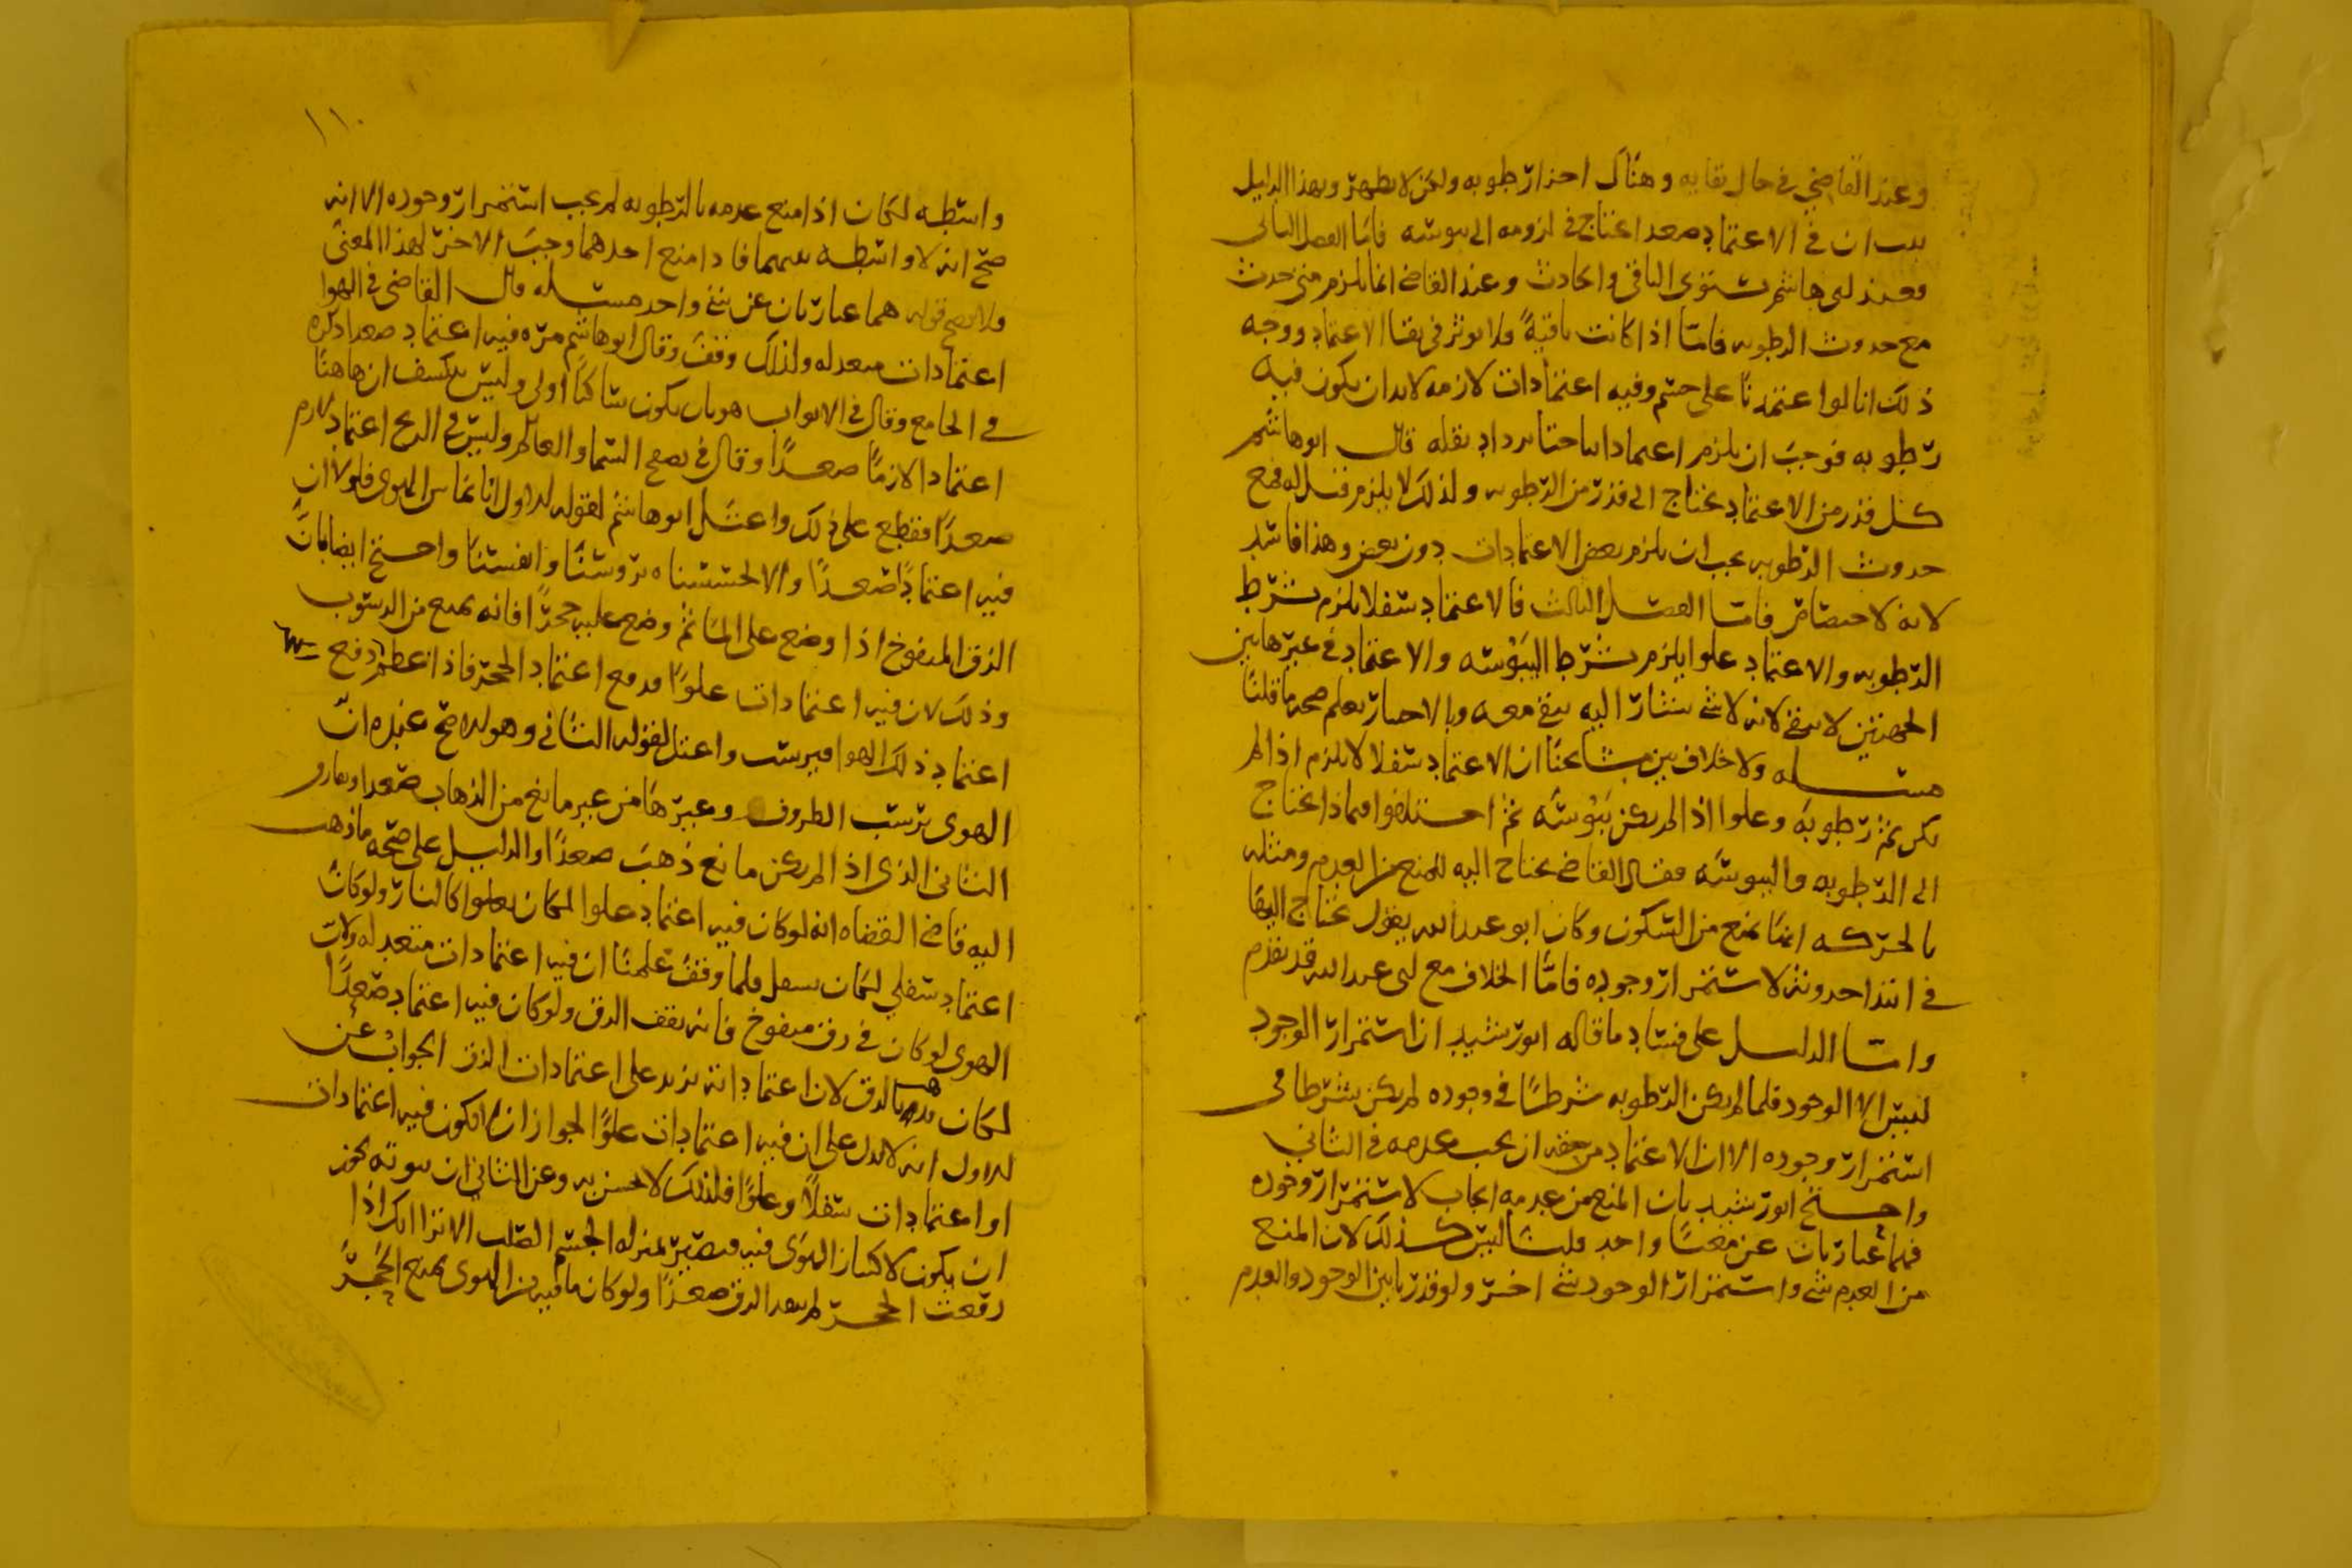 وعند القاضي في حال بقايه وهناك احذا رطوبه ولكن لا يطهر وبهذا الدليل
ان في الاعتماد صعدا تحتاج في لزومه الى يبوسه فاما الفصل الثاني
فعند ابي هاشم يستوى الباقي والحادث وعند القاضي انما يلزم متى حدث
مع حدوث الرطوبه فاما اذا كانت باقيةً فلا يوثر في بقا الاعتماد ووجه
ذلك انا لو اعتمدنا على جسم وفيه اعتمادات لازمه لابد ان يكون فيه
رطوبه فوجب ان يلزم اعتمادانا حتا يرداد ثقله قال ابو هاشم
كل قدر من الاعتماد تحتاج الى قدر من الرطوبه ولذلك لا يلزم قتله فمع
حدوث الرطوبه يجب ان يلزم بعض الاعتمادات دون بعض وهذا فاسد
لانه لا اختصاص فاما الفصل الثالث فالاعتماد سفلا يلزم بشرط
الرطوبه والاعتماد علوا يلزم بشرط اليبوسه والاعتماد في غير هاتين
الجهتين لا يبقى لانه لا شي يشار اليه يبقى معه وبالاختبار يعلم صحه ما قلنا
مسله ولا خلاف بين مشايخنا ان الاعتماد سفلا لا يلزم اذا لم
يكن ثم رطوبه وعلوا اذا لم يكن يبوسه ثم اختلفوا فيماذا تحتاج
الى الرطوبه واليبوسه فقال القاضي تحتاج اليه للمنع من العدم ومثله
بالحركه انها تمنع من السكون وكان ابو عبد الله يقول تحتاج اليها
في ابتدا حدوثه لاستمرار وجوده فاما الخلاف مع ابي عبد الله قد تقدم
واما الدليل على فساد ما قاله ابو رشيد ان استمرار الوجود
ليس الا الوجود فلما لم يكن الرطوبه شرطا في وجوده لم يكن شرطا في
استمرار وجوده الا ان الاعتماد من حقه ان يجب عدمه في الثاني
واحتج ابو رشيد بان المنع من عدمه ايجاب لاستمرار وجوده
فهما عبارتان عن معنا واحد قلنا ليس كذلك لان المنع
من العدم شي واستمرار الوجود شي اخر ولو قدرنا بين الوجود والعدم
١١٠
واسطه لكان اذا منع عدمه بالرطوبه لم يجب استمرار وجوده الا انه
صح انه لا واسطه بينهما فاذا منع احدهما وجب الاخر لهذا المعنى
ولا يصح قوله هما عبارتان عن شي واحد مسله قال القاضي في الهوا
اعتمادات معدله ولذلك وقف وقال ابو هاشم مره فيه اعتماد صعدا ذكره
في الجامع وقال في الابواب هو بان يكون ساكنا اولى وليس ينكسف ان هاهنا
اعتمادا لازما صعدًا وقال في السما والعالم وليس في الريح اعتماد لازم
صعدًا فقطع على ذلك واعتل ابو هاشم لقوله الاول انا نماس الهوى فلولا ان
فيه اعتمادًا صعدًا والا لحسسناه بروسنا وانفسنا واحتج ايضا بان
الزق المنفوخ اذا وضع على الما ثم وضع عليه حجرًا فانه يمنع من الرسوب
وذلك لان فيه اعتمادات علوًا مدفع اعتماد الحجر فاذا عظم دفع
اعتماد ذلك الهوا فيرسب واعتل لقوله الثاني وهو انه صح عنده ان
الهوى يرسب الطروف وغيرها من غير مانع من الذهاب صعدا ويفارق
الثاني الذي اذا لم يكن مانع ذهب صعدًا والدليل على صحه ما ذهب
اليه قاضي القضاه انه لو كان فيه اعتماد علوا لكان يعلوا كالنار ولو كان
اعتماد سفلي لكان يسفل فلما وقف علمنا ان فيه اعتمادات متعدله ولان
الهوى لو كان في زق منفوخ فانه يقف الزق ولو كان فيه اعتماد صعدًا
لكان بالزق لان اعتماداته تزيد على اعتمادات الزق الجواب عن
الاول انه لا يدل على ان فيه اعتمادات علوًا لجواز ان لا يكون فيه اعتمادات
او اعتمادات سفلًا وعلوًا فلذلك لا يحس به وعن الثاني ان ثبوته يجوز
ان يكون لاكتناز الهوى فيه فيصير بمنزله الجسم الصلب الا ترا انك اذا
رفعت الحجر لم يصعد الزق صعدًا ولو كان ما فيه من الهوى يمنع الحجر